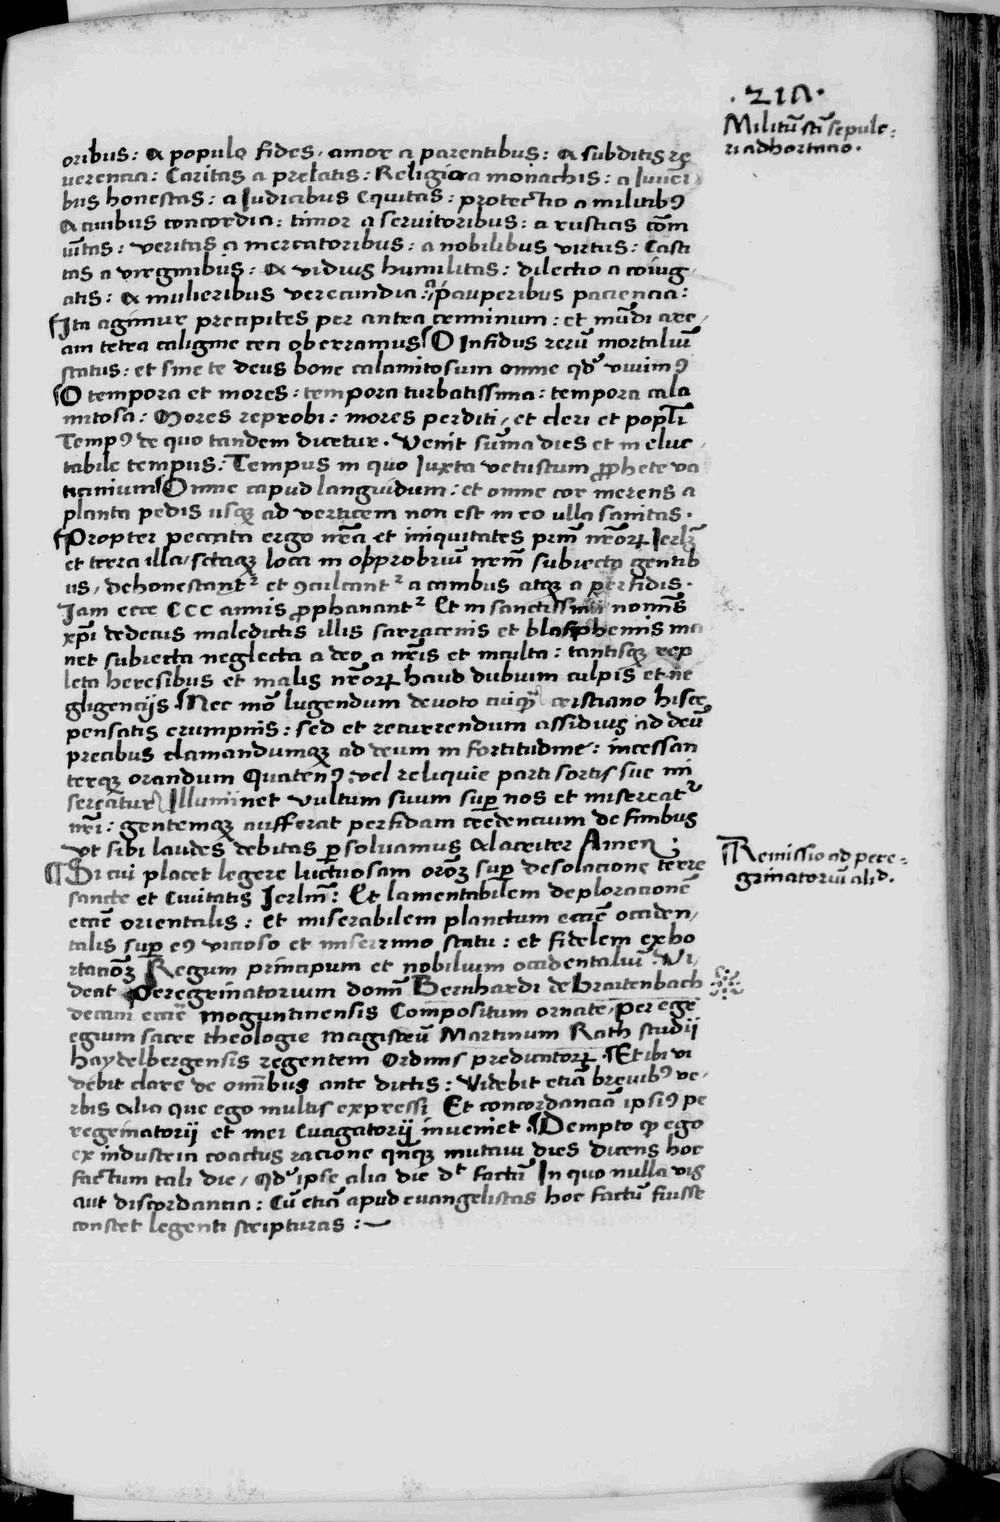 .217.
Militū sti sepulc-
ri adhortatio.
oribus: A populo fides, amor a parentibus: A subditis re
uerencia: Caritas a prelatis: Religio a monachis: a Iuueni
bus honestas: a Iudicibus Equitas: protectio a militib9
A ciuibus concordia: timor a seruitoribus: a rusticis cōm
uītas: veritas a mercatoribus: a nobilibus virtus: Casti
tas a virginibus: A viduis humilitas: dilectio a coniug
atis: A mulieribus verecundia: a pauperibus paciencia:
¶Ita agimur precipites per antea terminum: et mūdi arc/
am tetra caligine ceci oberramus ¶O Infidus rerū mortaliū
status: et sine te deus bone calamitosum omne qd' viuim9
¶O tempora et mores: tempora turbatissima: tempora cala
mitosa: Mores reprobi: mores perditi, et cleri et popli
Temp9 de quo tandem dicetur. Venit sūma dies et ineluc/
tabile tempus: Tempus in quo Iuxta vetustum pphete va
ticinium ¶Omne capud languidum: et omne cor merens a
planta pedis usqz ad verticem non est in eo ulla sanitas.
¶Propter peccata ergo nr̄a et iniquitates prim nr̄or Ierlz
et terra illa, sctaqz loca in opprobriū nrm̄ subiecta gentib
us, dehonestantr et 9culcantr a canibus atqz a perfidis.
Iam ecce CCC annis pphanantr Et in sanctissimi nomīs
xpi dedecus maledictis illis sarracenis et blasphemis ma
net subiecta neglecta a deo a nr̄is et inculta: tantisqz rep
leta heresibus et malis nr̄or haud dubium culpis et ne
gligencijs ¶Nec mō lugendum deuoto cuiqz cristiano hisce
pensatis erumpnis: sed et recurrendum assidius ad deū
precibus clamandumqz ad deum in fortitudine: incessan
terqz orandum Quaten9 vel reliquie parti sortis sue mi
sereātur Illuminet vultum suum sup nos et misereatr
nr̄i: gentemqz aufferat perfidam credencium de finibus
vt sibi laudes debitas psoluamus Alacriter Amen:
¶Remissio ad pere-
grinatoriū alid.
¶Si cui placet legere luctuosam orōz sup desolacione terre
sancte et Ciuitatis Ierlm̄: Et lamentabilem deploracionē
eccāē orientalis: et miserabilem planctum eccāē occiden/
talis sup e9 vicioso et miserrimo statu: et fidelem exho
rtacōz Regum principum et nobiluim occidentaliū Vi/
deat Peregrinatorium domī Bernhardi de Braitenbach
decani eccīe moguntinensis Compositum ornate, per egr̄
egium sacre theologie magistrū Martinum Rath studij
haydelbergensis regentem Ordinis predicatorr. ¶Et ibi vi
debit clare de omībus ante dictis: Videbit etiā breuib9 ve/
rbis Alia que ego multis expressi Et concordanciā ipsi9 pe
regrinatorij et mei Euagatorij inueniet. ¶Dempto qp ego
ex industria coactus racione qnqz mutaui dies dicens hoc
factum tali die, qd' ipse alia die dt factū In quo nulla vis
aut discordancia: Cū etiā apud euangelistas hoc factū fuisse
constet legenti scripturas: